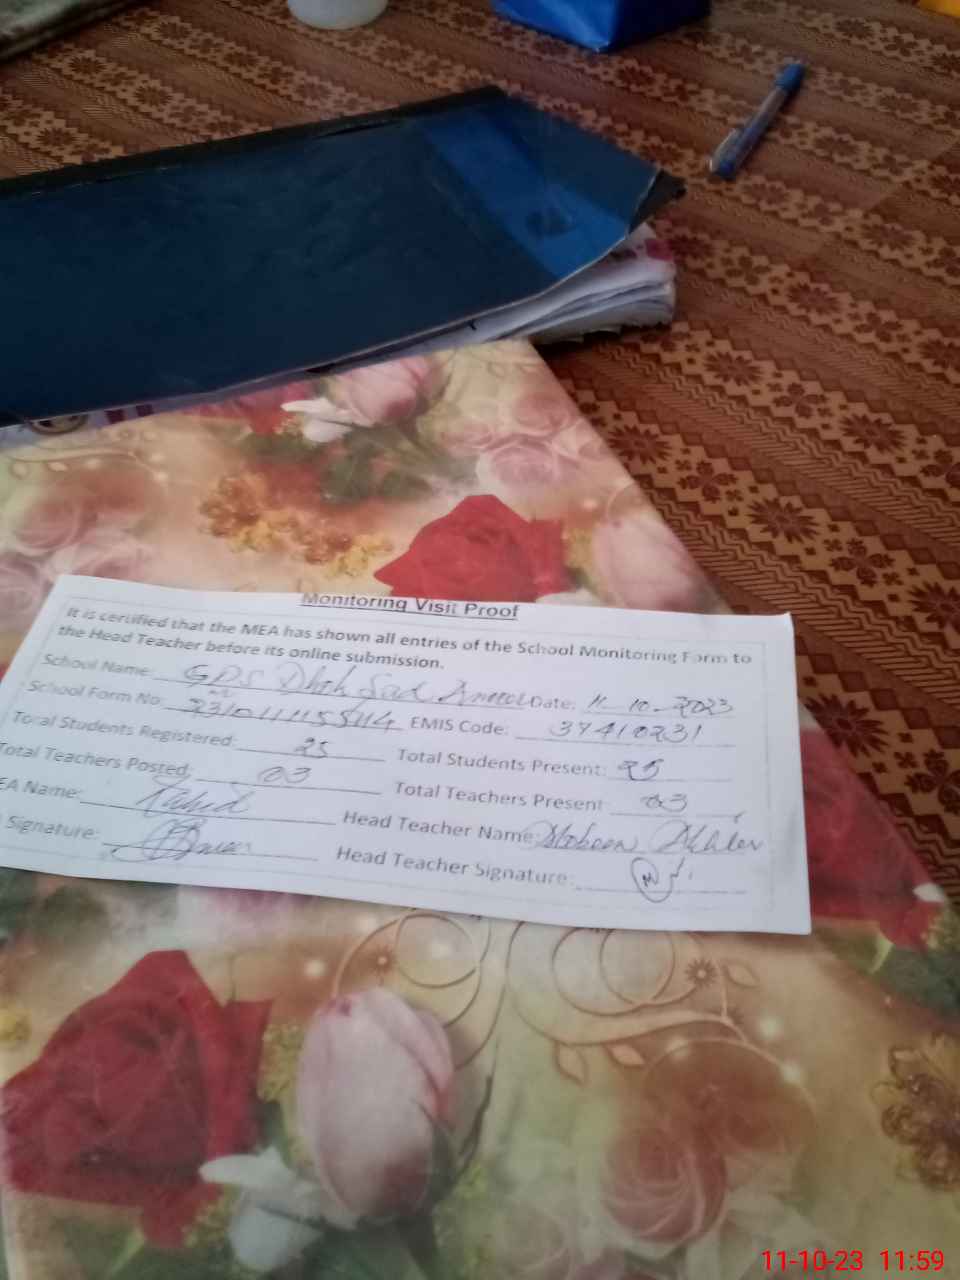 Monitoring Visit Proof
It is certified that the MEA has shown all entries of the School Monitoring Form to
the Head Teacher before its online submission.
School Name: GPS Dhok Date: 11-10-2023
School Form No: EMIS Code: 37410231
Total Students Registered: 25 Total Students Present: 25
Total Teachers Posted: 03 Total Teachers Present 03
EA Name: Head Teacher Name:
Signature: Head Teacher Signature:
11-10-23 11:59